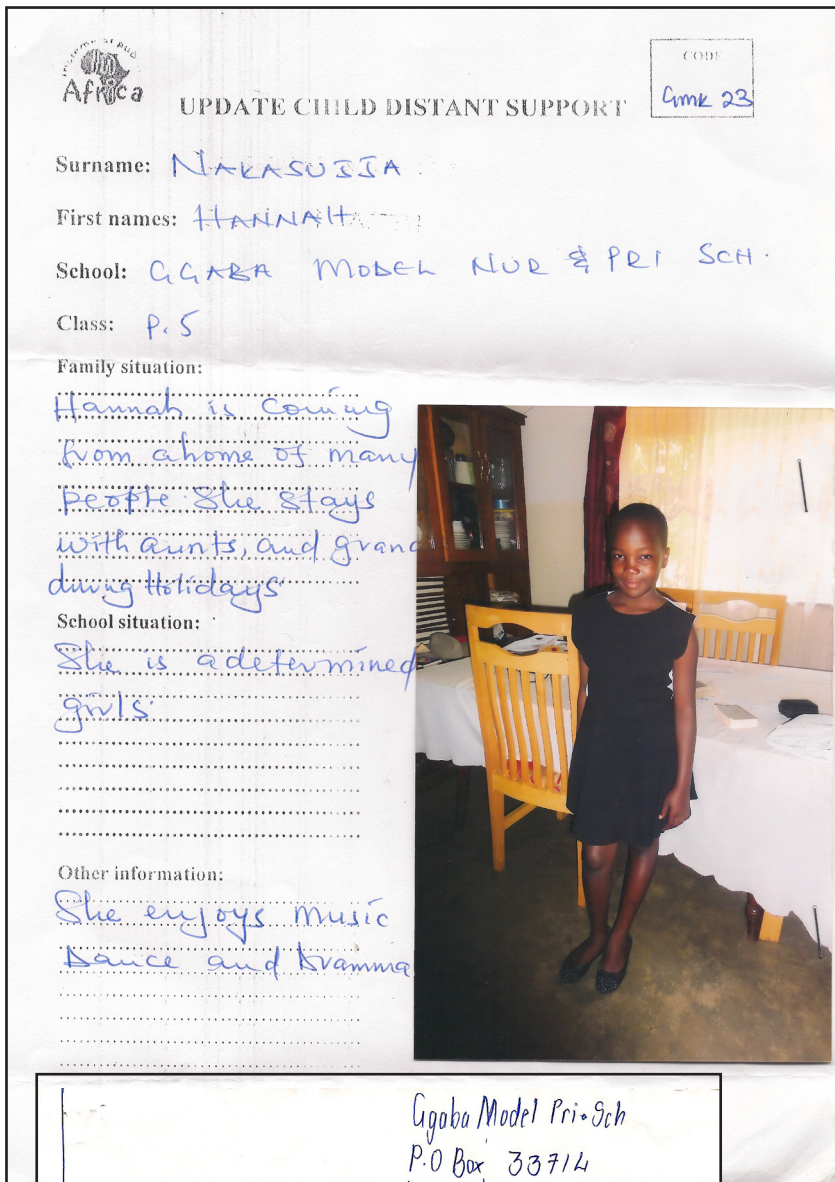 Insieme si può
Africa
CODE
Gmk 23
UPDATE CHILD DISTANT SUPPORT
Surname: NAKASUJJA
First names: HANNAH
School: GGABA MODEL NUR & PRI SCH.
Class: P.5
Family situation:
Hannah is coming
from a home of many
people. She stays
with aunts, and grand
during Holidays
School situation:
She is a determined
girls.
Other information:
She enjoys music
Dance and Dramma
Ggaba Model Pri. Sch
P.O Box 33714